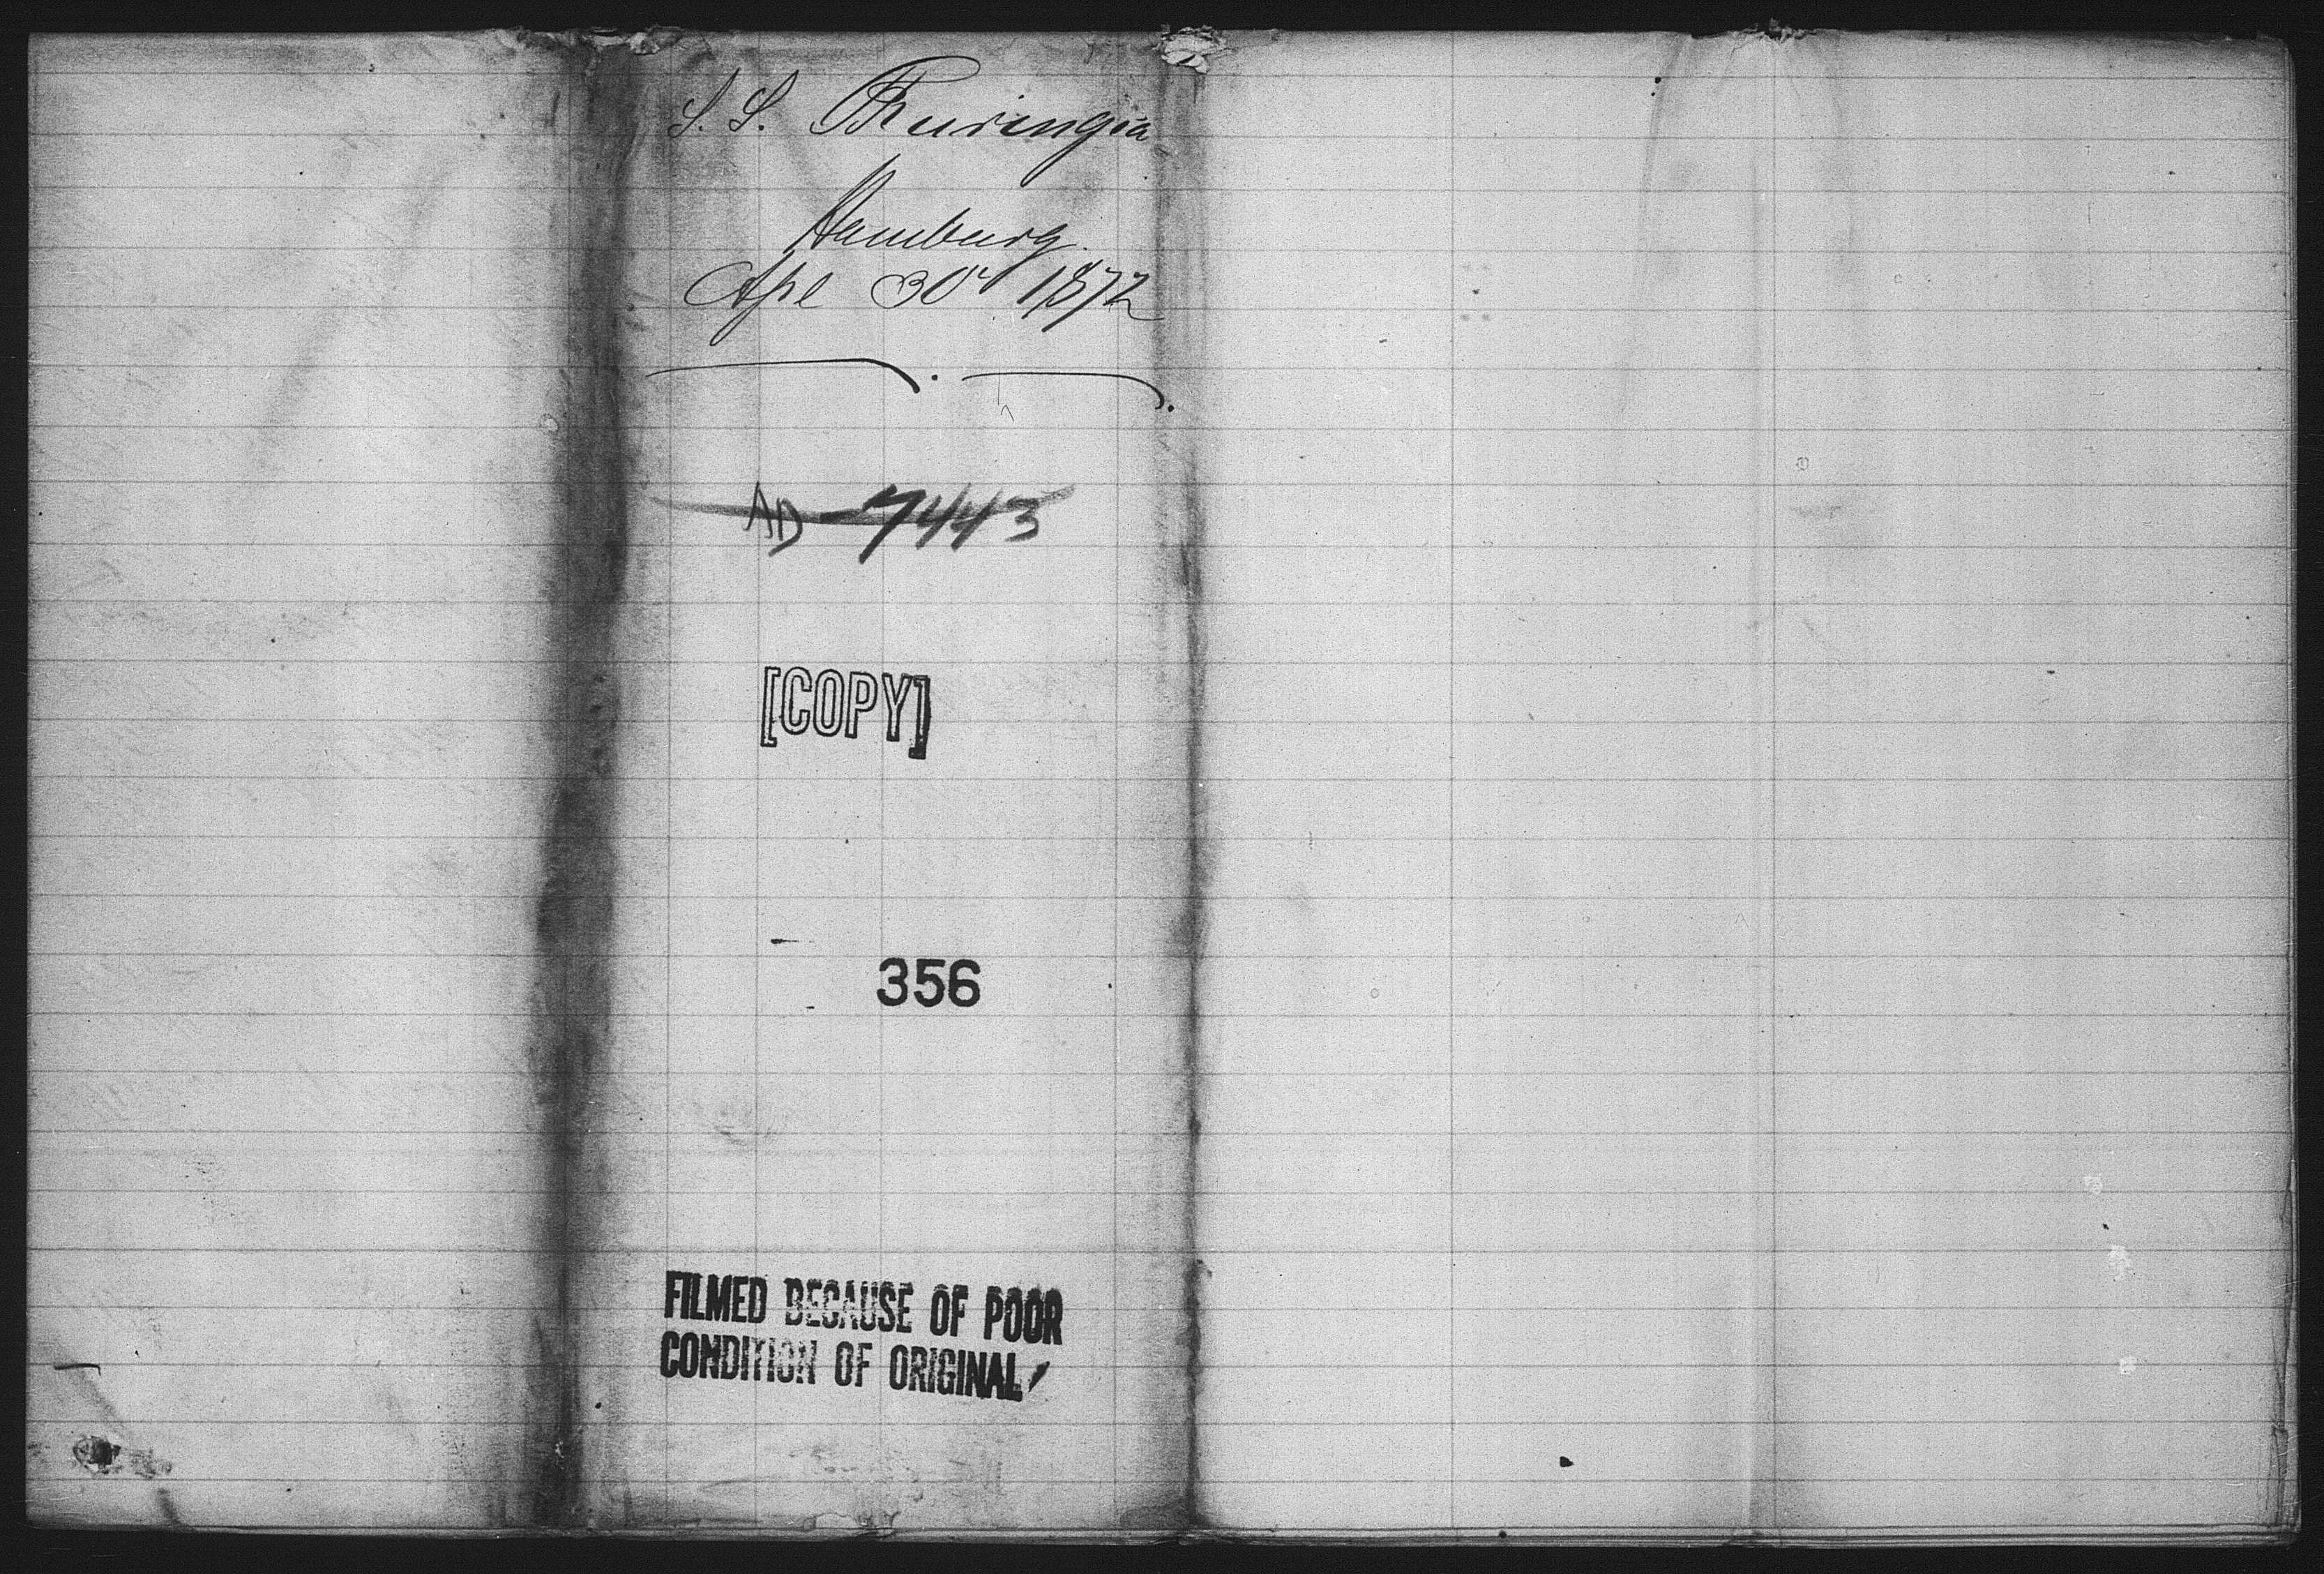 S. S. Thuringia
Hamburg.
Apl 30" 1872
AD-7443
[COPY]
356
FILMED BECAUSE OF POOR
CONDITION OF ORIGINAL